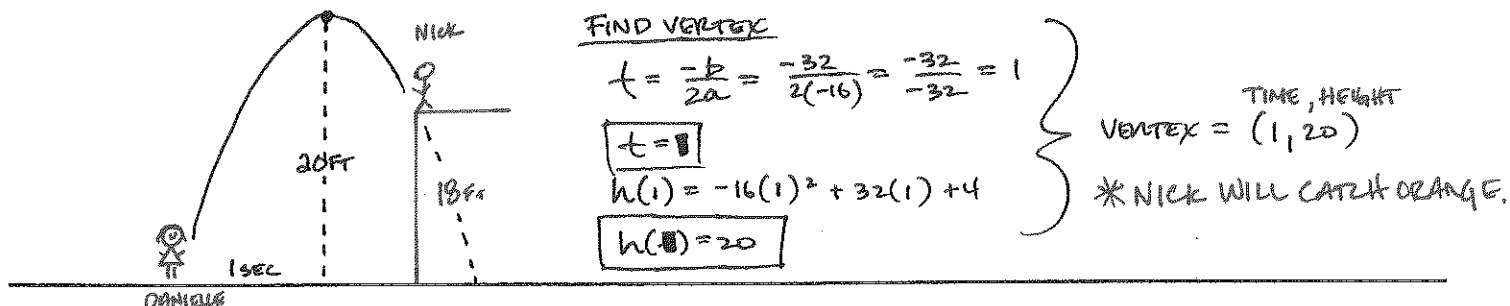 NICK
20FT
18FT
1SEC
DANIELLE
FIND VERTEX
t = -b/2a = -32/2(-16) = -32/-32 = 1
t =
h(1) = -16(1)² + 32(1) + 4
h( ) = 20
TIME, HEIGHT
VERTEX = (1, 20)
* NICK WILL CATCH ORANGE.